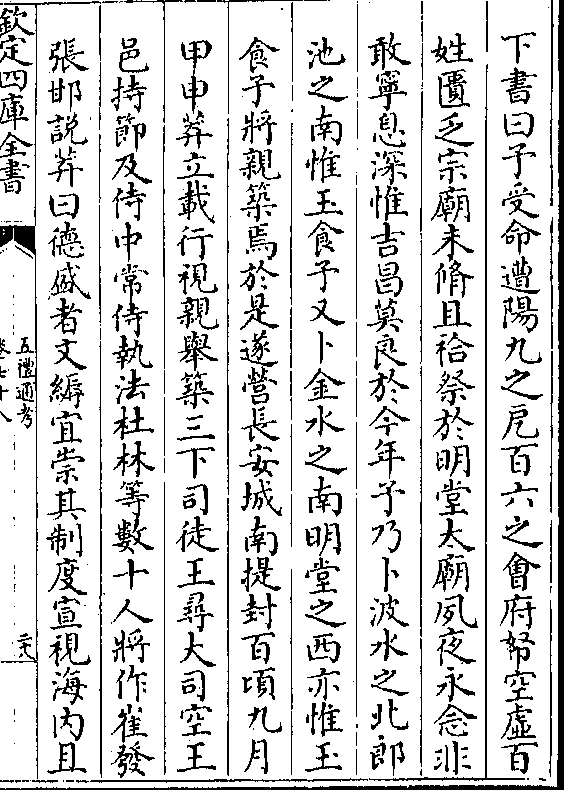 下書曰予受命遭陽九之戹百六之會府帑空虛百
姓匱乏宗廟未脩且祫祭於明堂太廟夙夜永念非
敢寧息深惟吉昌莫良於今年予乃卜波水之北郎
池之南惟玉食予又卜金水之南明堂之西亦惟玉
食予將親築焉於是遂營長安城南提封百頃九月
甲申莽立載行視親舉築三下司徒王尋大司空王
邑持節及侍中常侍執法杜林等數十人將作崔發
張邯說莽曰德盛者文縟宜崇其制度宣視海內且
欽定四庫全書
五禮通考
卷七十八
二十八